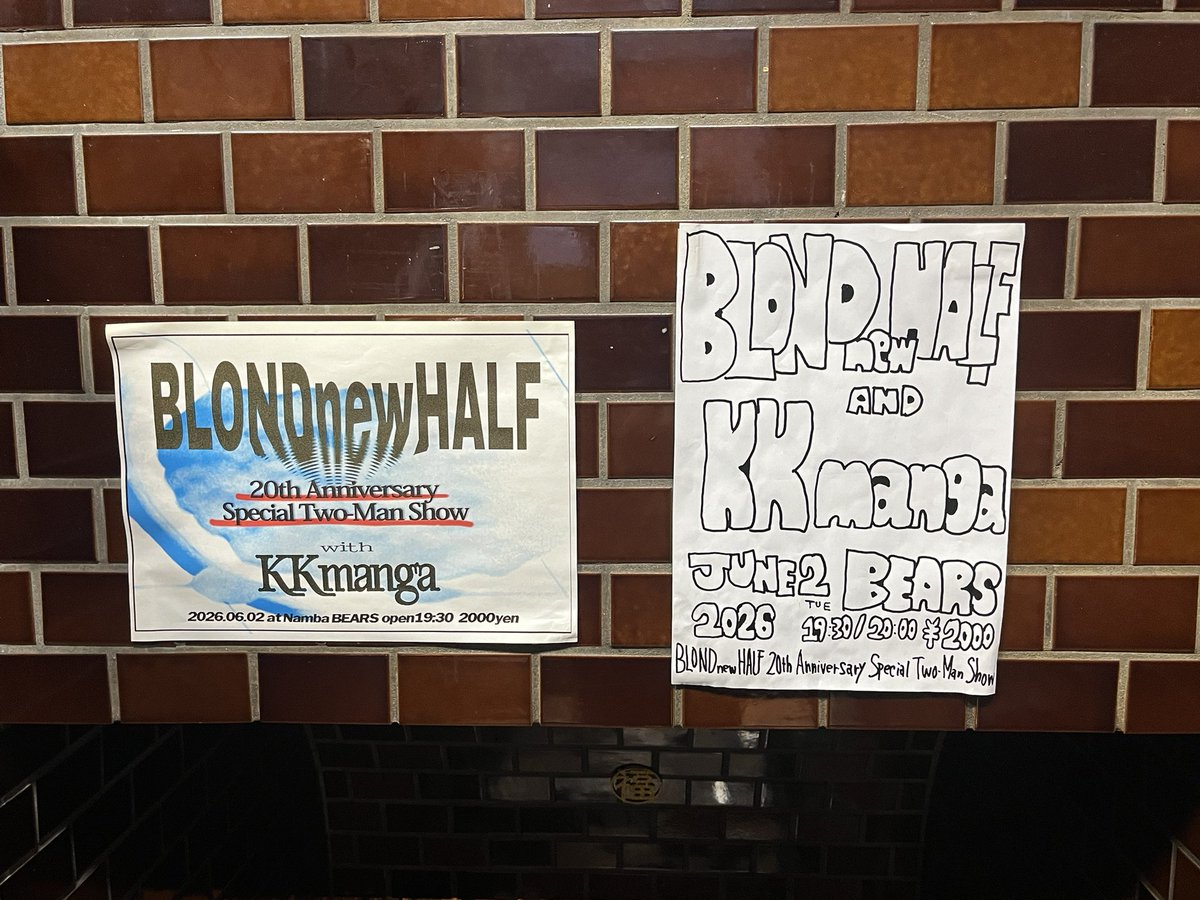 BLONDnewHALF
20th Anniversary
Special Two-Man Show
with
KKmanga
2026.06.02 at Namba BEARS open19:30 2000yen
BLOND new HALF
AND
KK manga
JUNE 2 BEARS
TUE
2026 19:30/20:00 ¥2000
BLONDnewHALF 20th Anniversary Special Two-Man Show
福